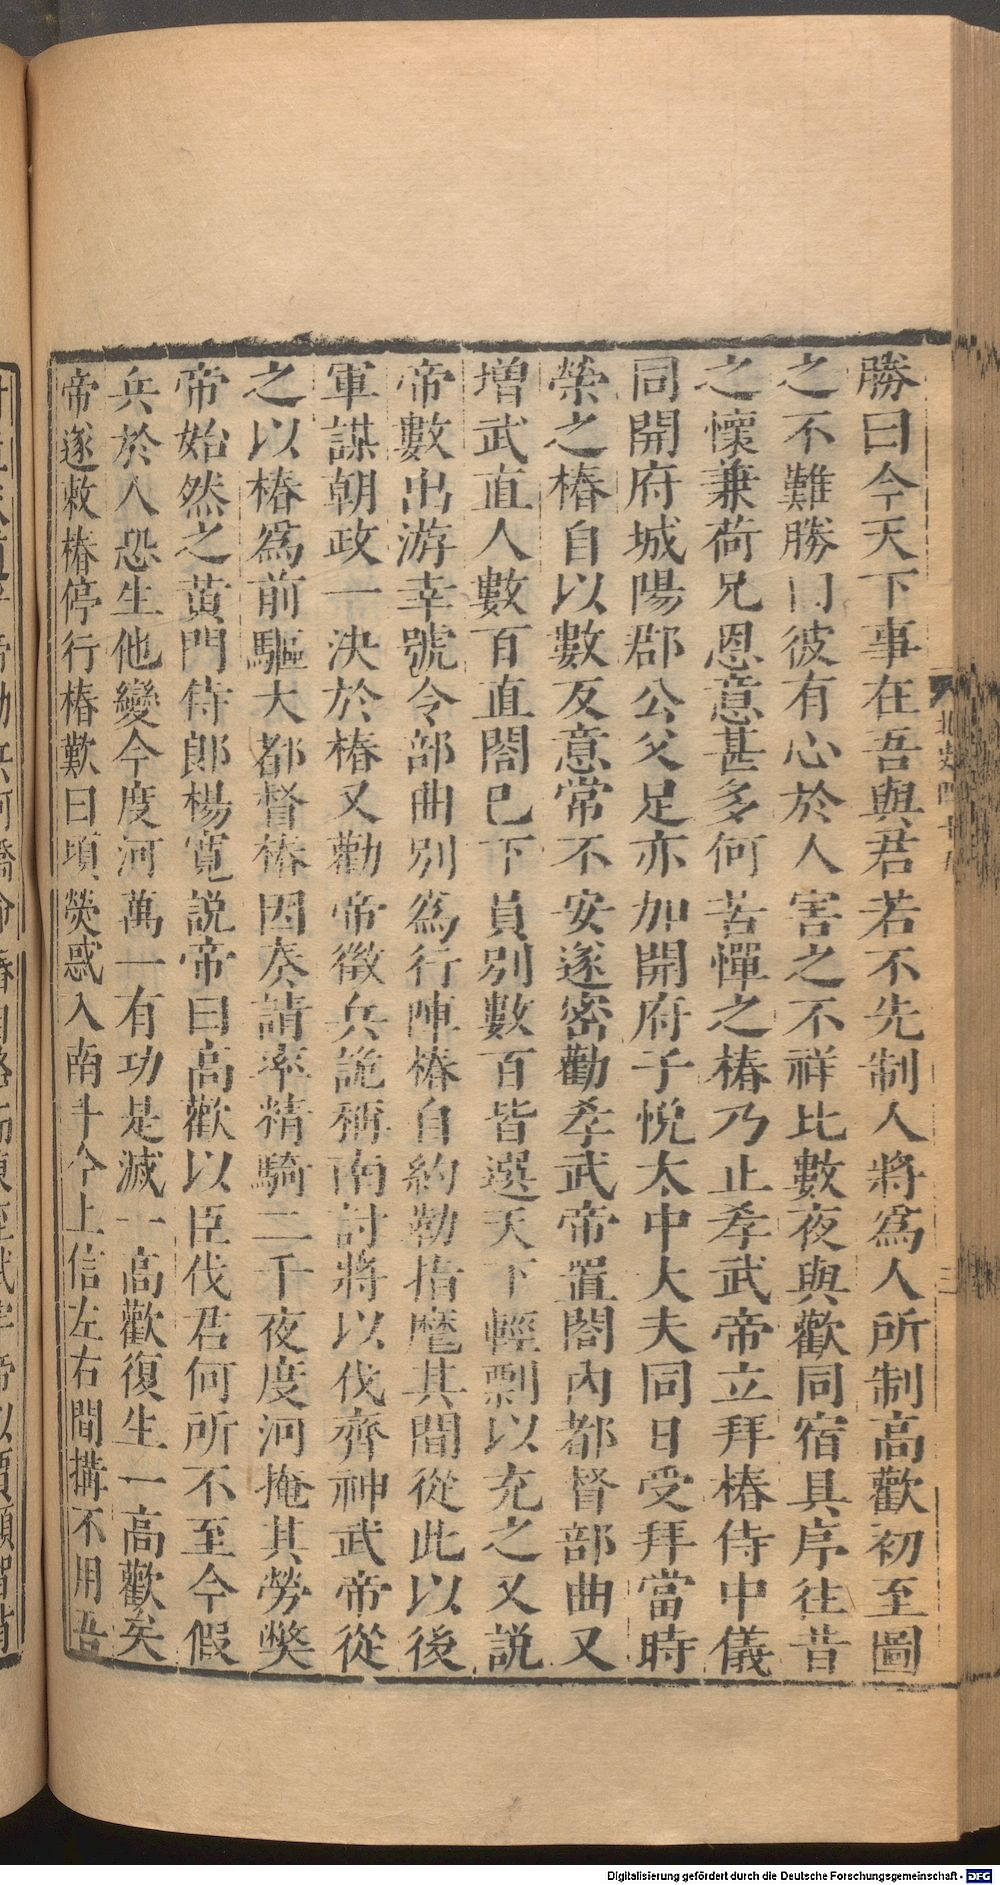 勝曰今天下事在吾與君若不先制人將爲人所制高歡初至圖
之不難勝曰彼有心於人害之不祥比數夜與歡同宿具序往昔
之懷兼荷兄恩意甚多何苦憚之椿乃止孝武帝立拜椿侍中儀
同開府城陽郡公父足亦加開府子悅太中大夫同日受拜當時
榮之椿自以數反意常不安遂密勸孝武帝置閤內都督部曲又
增武直人數百直閤已下員別數百皆選天下輕剽以充之又說
帝數出游幸號令部曲別爲行陣椿自約勒指麾其間從此以後
軍謀朝政一決於椿又勸帝徵兵詭稱南討將以伐齊神武帝從
之以椿爲前驅大都督椿因奏請率精騎二千夜度河掩其勞獘
帝始然之黃門侍郎楊寬說帝曰高歡以臣伐君何所不至今假
兵於人恐生他變今度河萬一有功是滅一高歡復生一高歡矣
帝遂敕椿停行椿歎曰頃熒惑入南斗今上信左右間搆不用吾
北史四十九
三
Digitalisierung gefördert durch die Deutsche Forschungsgemeinschaft - DFG